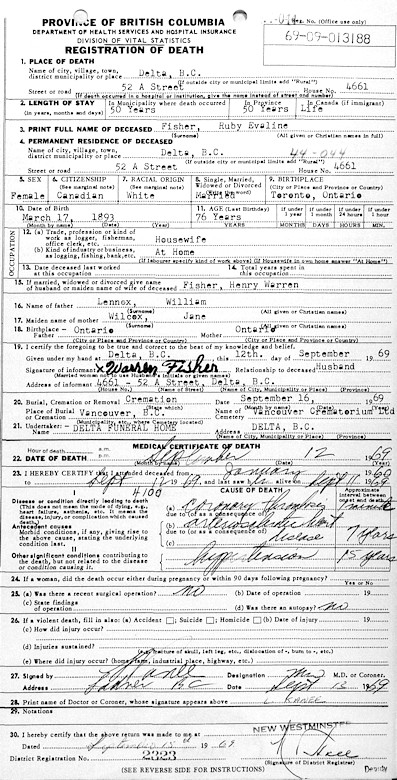 PROVINCE OF BRITISH COLUMBIA
DEPARTMENT OF HEALTH SERVICES AND HOSPITAL INSURANCE
DIVISION OF VITAL STATISTICS
REGISTRATION OF DEATH
No. (Office use only)
69-09-013188
1. PLACE OF DEATH
Name of city, village, town, district municipality or place Delta, B.C.
(If outside city or municipal limits add "Rural")
Street or road 52 A Street House No. 4661
(If death occurred in a hospital or institution, give the name instead of street and number)
2. LENGTH OF STAY (in years, months and days) In Municipality where death occurred 50 Years In Province 50 Years In Canada (if immigrant) Life
3. PRINT FULL NAME OF DECEASED Fisher, Ruby Evaline
(Surname) (All given or Christian names in full)
4. PERMANENT RESIDENCE OF DECEASED
Name of city, village, town, district municipality or place Delta, B.C. 44-044
(If outside city or municipal limits add "Rural")
Street or road 52 A Street House No. 4661
5. SEX 6. CITIZENSHIP (See marginal note) 7. RACIAL ORIGIN (See marginal note) 8. Single, Married, Widowed or Divorced (Write the word) 9. BIRTHPLACE (City or Place and Province or Country)
Female Canadian White Married Toronto, Ontario
10. Date of Birth March 17, 1893
(Month by name) (Date) (Year)
11. AGE (Last Birthday) 76 Years
YEARS
If under 1 year MONTHS If under 1 month DAYS If under 24 hours HOURS If under 1 hour MIN.
12. (a) Trade, profession or kind of work as logger, fisherman, office clerk, etc. Housewife
(b) Kind of industry or business, as logging, fishing, bank, etc. At Home
(If labourer specify kind of work above) (If Housewife in own home answer "At Home")
13. Date deceased last worked at this occupation
14. Total years spent in this occupation
15. If married, widowed or divorced give name of husband or maiden name of wife of deceased Fisher, Henry Warren
16. Name of father Lennox, William
(Surname) (All given or Christian names)
17. Maiden name of mother Wilcox, Jane
(Surname) (All given or Christian names)
18. Birthplace - Father Ontario Mother Ontario
(City or Place and Province or Country) (City or Place and Province or Country)
19. I certify the foregoing to be true and correct to the best of my knowledge and belief.
Given under my hand at Delta, B.C. this 12th. day of September 1969
Signature of informant X Warren Fisher Relationship to deceased Husband
(Married woman not to use Husband's initials or given name)
Address of informant 4661 - 52 A Street, Delta, B.C.
(House No.) (Name of Street) (Name of City, Municipality or Place) (Province)
20. Burial, Cremation or Removal Cremation Date September 16, 1969
(State which) (Month by name)
Place of Burial or Cremation Vancouver, B.C. Name of Cemetery Vancouver Crematorium Ltd
(Municipality, etc. where Cemetery located)
21. Undertaker: Name DELTA FUNERAL HOME Address DELTA, B.C.
(Name of City, Municipality or Place)
MEDICAL CERTIFICATE OF DEATH
Hour of death, a.m. p.m.
22. DATE OF DEATH September 12 1969
(Month by name) (Date) (Year)
23. I HEREBY CERTIFY that I attended deceased from January 1960
to Sept 12 1969, and last saw h alive on Sept 11 1969
4100
I CAUSE OF DEATH Approximate interval between onset and death
Disease or condition directly leading to death (This does not mean the mode of dying, e.g., heart failure, asthenia, etc. It means the disease, injury, or complication which caused death.)
(a) coronary thrombosis 1 minute
due to (or as a consequence of)
Antecedent causes
Morbid conditions, if any, giving rise to the above cause, stating the underlying condition last.
(b) arteriosclerotic heart disease 7 years
due to (or as a consequence of)
(c)
II
Other significant conditions contributing to the death, but not related to the disease or condition causing it.
hypertension 15 years
24. If a woman, did the death occur either during pregnancy or within 90 days following pregnancy?
Yes or No
25. (a) Was there a recent surgical operation? no (b) Date of operation 19
(c) State findings of operation (d) Was there an autopsy? no
26. If a violent death, fill in also: (a) Accident ; Suicide ; Homicide (b) Date of injury 19
(c) How did injury occur?
(d) Injuries sustained?
(e.g. fracture of skull, left leg, etc., dislocation of -, burn to -, etc.)
(e) Where did injury occur? (home, farm, industrial place, highway, etc.)
27. Signed by L Kanee Designation M.D. or Coroner.
Address Ladner BC Date Sept 13 1969
28. Print name of Doctor or Coroner, whose signature appears above L. KANEE
29. Notations
NEW WESTMINSTER
30. I hereby certify that the above return was made to me at
Dated September 15 1969
District Registration No. 2323
(Signature of District Registrar)
Deputy
(SEE REVERSE SIDE FOR INSTRUCTIONS)